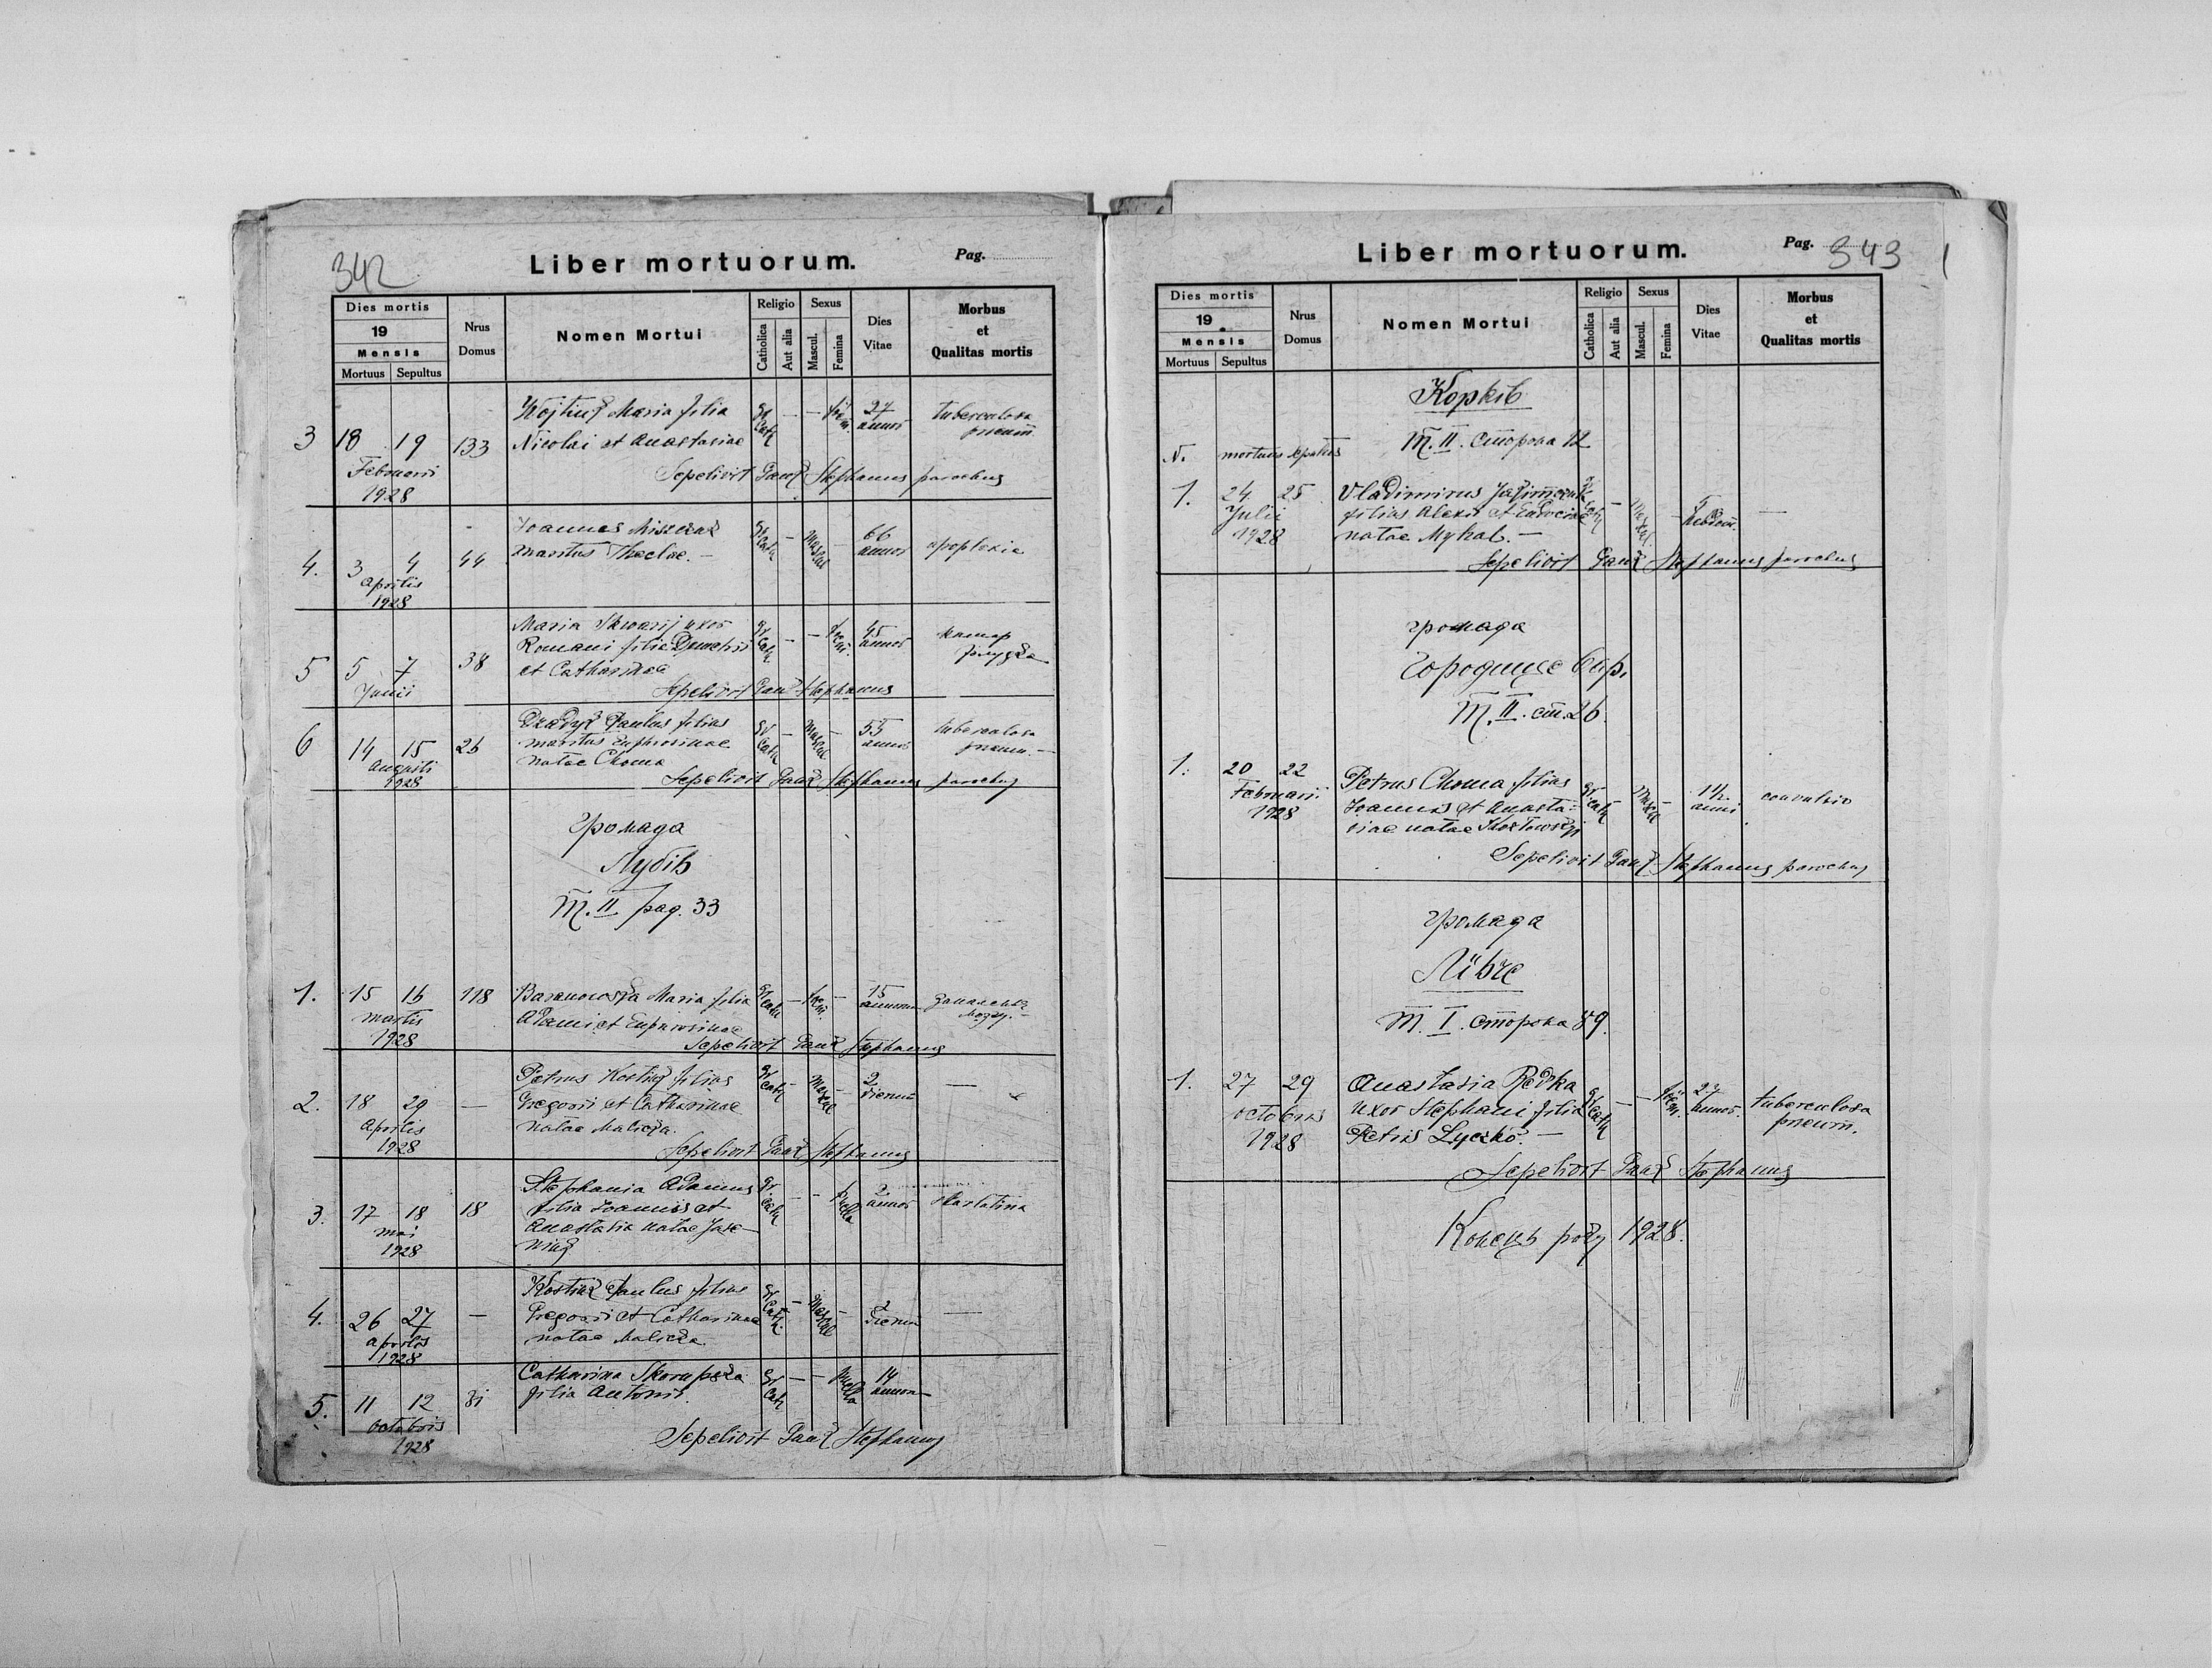 342
Liber mortuorum.
Pag.
Dies mortis
19
Mensis
Mortuus Sepultus
Nrus Domus
Nomen Mortui
Religio
Catholica
Aut alia
Sexus
Mascul.
Femina
Dies Vitae
Morbus et Qualitas mortis
3 18 19 133
Februarii
1928
Maria filia
Nicolai et Anastasiae
gr cath — — fem. 27 annor tuberculosa pneum
Sepelivit Stephanus parochus
4. 3 4 44
Aprilis
1928
Joannes Miszczak
maritus Theclae. —
gr cath — Mascul — 66 annor apoplexia
5 5 7 38
Junii
Maria Skwarij uxor
Romani filia Demetrii
et Catharinae
gr cath — — 45 annor катар
Sepelivit Stephanus
6 14 15 26
Augusti
1928
Paulus filius
maritus Euphrosinae
natae Choma
gr cath — Mascul — 55 annor tuberculosa pneum. —
Sepelivit Stephanus parochus
Громада
Лубів
Т. II pag. 33
1. 15 16 118
Martis
1928
Baranowska Maria filia
Adami et Euphrosinae
gr cath — fem. — 15 annorum запалення мозгу. —
Sepelivit Stephanus
2. 18 20 —
Aprilis
1928
Petrus Kostiuk filius
Gregorii et Catharinae
natae Malicka.
gr cath — Mascul — 2 dierum —
Sepelivit Stephanus
3. 17 18 18
Mai
1928
Stephania Adamus
filia Joannis et
Anastasia natae Jase-
niuk
gr cath — — puella 2 annor skarlatina
4. 26 27 —
Aprilis
1928
Kostiuk Paulus filius
Gregorii et Catharinae
natae Malicka.
gr cath. — Mascul — dierum —
5. 11 12 31
Octobris
1928
Catharina Skorupska
filia Antonii.
gr cath — — puella 14 annorum —
Sepelivit Stephanus
Liber mortuorum.
Pag. 343
Dies mortis
19
Mensis
Mortuus Sepultus
Nrus Domus
Nomen Mortui
Religio
Catholica
Aut alia
Sexus
Mascul.
Femina
Dies Vitae
Morbus et Qualitas mortis
Корків
Т. II. сторона 12
N. mortuus sepultus
1. 24 25
Julii
1928
Vladimirus
filius Alexii et Eudociae
natae Mykal. —
gr cath — — 5 —
Sepelivit Stephanus parochus
громада
Городище вар.
Т. II. ст. 26.
1. 20 22
Februarii
1928
Petrus Choma filius
Joannis et Anasta-
siae natae
gr cath — Mascul — 1½ anni convulsio
Sepelivit Stephanus parochus
громада
Лівче
Т. I. сторона 89.
1. 27 29
Octobris
1928
Anastasia Redka
uxor Stephani filia
Petris Lyczko. —
gr cath — — fem. 27 annor. tuberculosa pneum.
Sepelivit Stephanus
Конець року 1928.